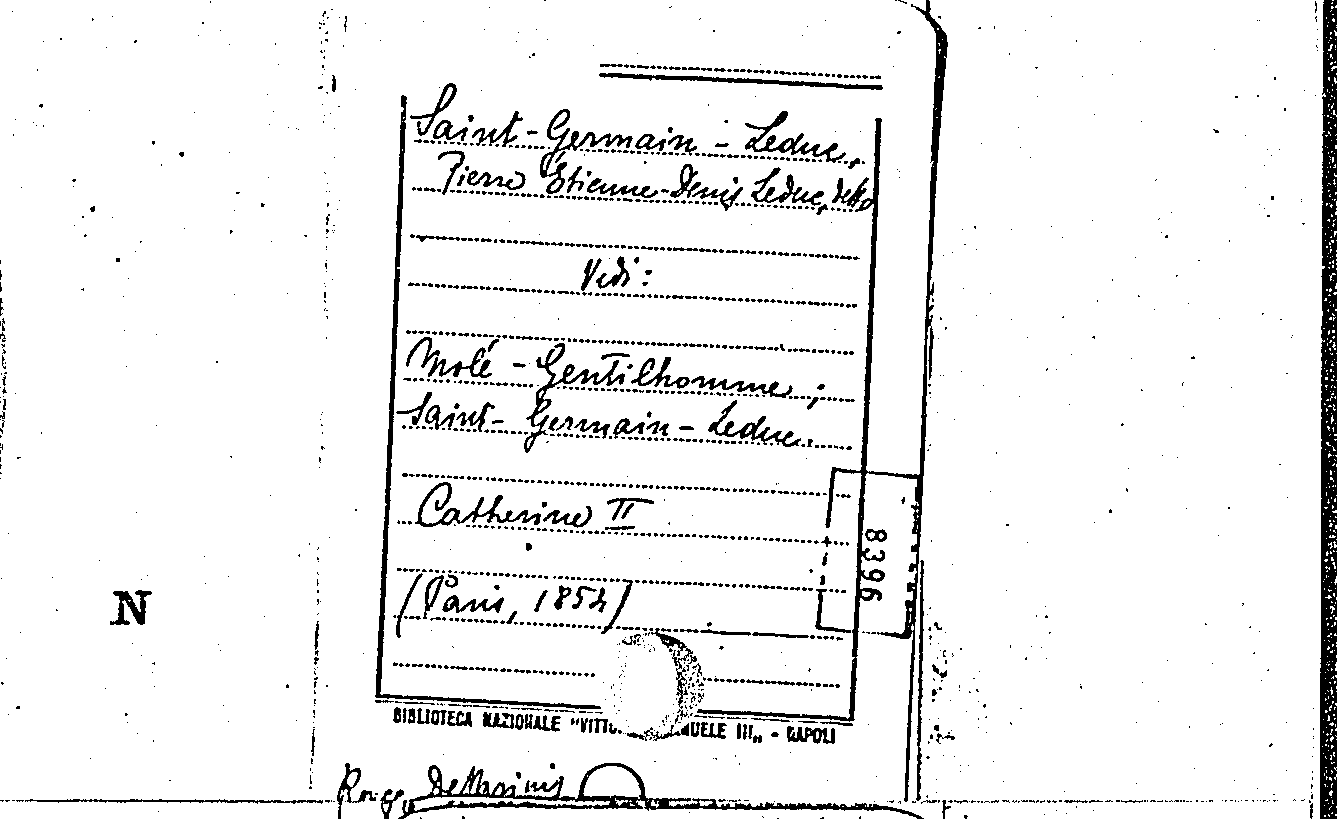 Saint-Germain-Leduc,
Pierre Étienne-Denis Leduc, detto
Vedi:
Molé-Gentilhomme;
Saint-Germain-Leduc.
Catherine II
(Paris, 1854)
8396
N
BIBLIOTECA NAZIONALE "VITTO UELE III„ - NAPOLI
De Marinis